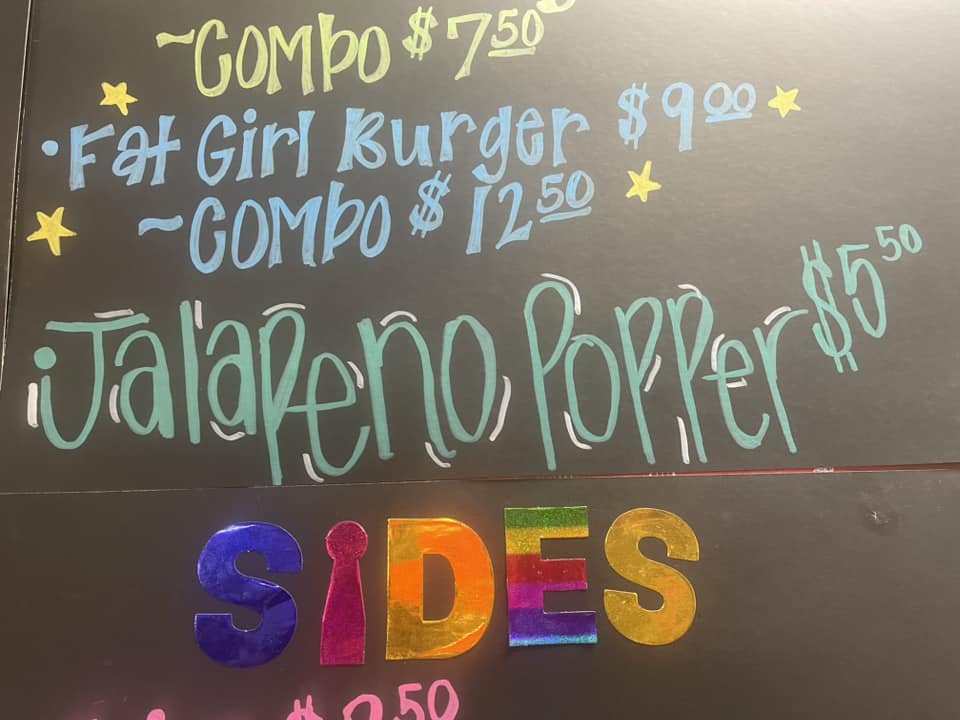 ~Combo $7.50
• Fat Girl Burger $9.00
~Combo $12.50
Jalapeno Popper $5.50
SiDES